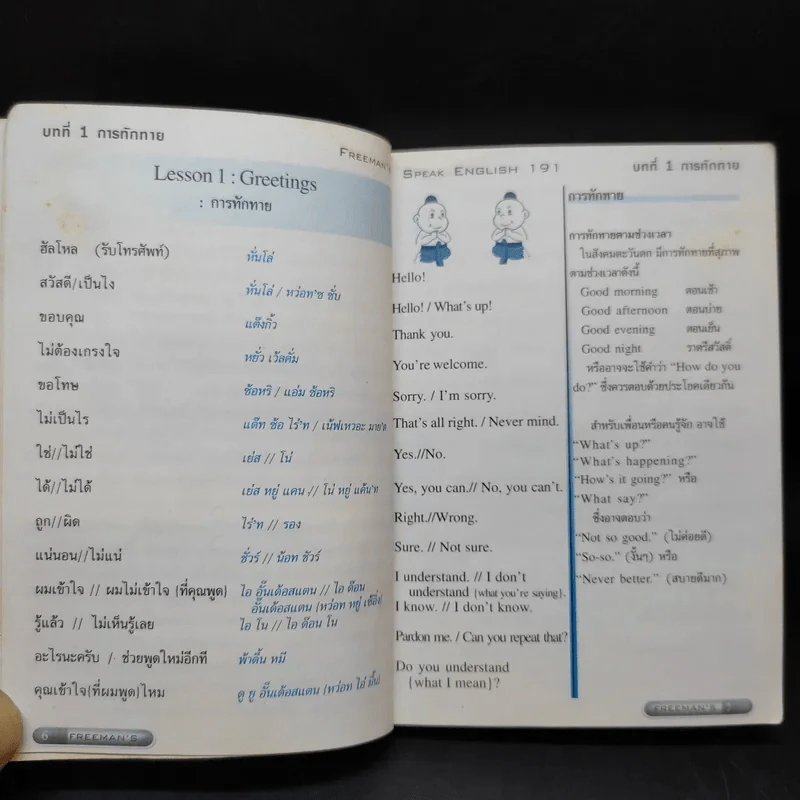 บทที่ 1 การทักทาย
FREEMAN'S
Lesson 1 : Greetings
: การทักทาย
ฮัลโหล (รับโทรศัพท์) หั่นโล่
สวัสดี/เป็นไง หั่นโล่ / หว่อท'ซ ชั่บ
ขอบคุณ แต๊งกิ้ว
ไม่ต้องเกรงใจ หยั่ว เว้ลคั่ม
ขอโทษ ซ้อหริ / แอ่ม ซ้อหริ
ไม่เป็นไร แด๊ท ซ้อ ไร้'ท / เน้ฟเหวอะ มาย'ด
ใช่//ไม่ใช่ เย่ส // โน่
ได้//ไม่ได้ เย่ส หยู่ แคน // โน่ หยู่ แค้น'ท
ถูก//ผิด ไร้'ท // รอง
แน่นอน//ไม่แน่ ชั่วร์ // น้อท ชัวร์
ผมเข้าใจ // ผมไม่เข้าใจ {ที่คุณพูด} ไอ อั๊นเด้อสแตน // ไอ ด๊อน
อั๊นเด้อสแตน {หว่อท หยู่ เซ้อิ่ง}
รู้แล้ว // ไม่เห็นรู้เลย ไอ โน // ไอ ด๊อน โน
อะไรนะครับ / ช่วยพูดใหม่อีกที พ้าดึ้น หมี
คุณเข้าใจ{ที่ผมพูด}ไหม ดู ยู อั๊นเด้อสแตน {หว่อท ไอ่ มี้น}
6 FREEMAN'S
SPEAK ENGLISH 191
บทที่ 1 การทักทาย
Hello!
Hello! / What's up!
Thank you.
You're welcome.
Sorry. / I'm sorry.
That's all right. / Never mind.
Yes.//No.
Yes, you can.// No, you can't.
Right.//Wrong.
Sure. // Not sure.
I understand. // I don't
understand {what you're saying}.
I know. // I don't know.
Pardon me. / Can you repeat that?
Do you understand
{what I mean}?
การทักทาย
การทักทายตามช่วงเวลา
ในสังคมตะวันตก มีการทักทายที่สุภาพ
ตามช่วงเวลาดังนี้
Good morning ตอนเช้า
Good afternoon ตอนบ่าย
Good evening ตอนเย็น
Good night ราตรีสวัสดิ์
หรืออาจจะใช้คำว่า "How do you
do?" ซึ่งควรตอบด้วยประโยคเดียวกัน
สำหรับเพื่อนหรือคนรู้จัก อาจใช้
"What's up?"
"What's happening?"
"How's it going?" หรือ
"What say?"
ซึ่งอาจตอบว่า
"Not so good." (ไม่ค่อยดี)
"So-so." (งั้นๆ) หรือ
"Never better." (สบายดีมาก)
FREEMAN'S 7